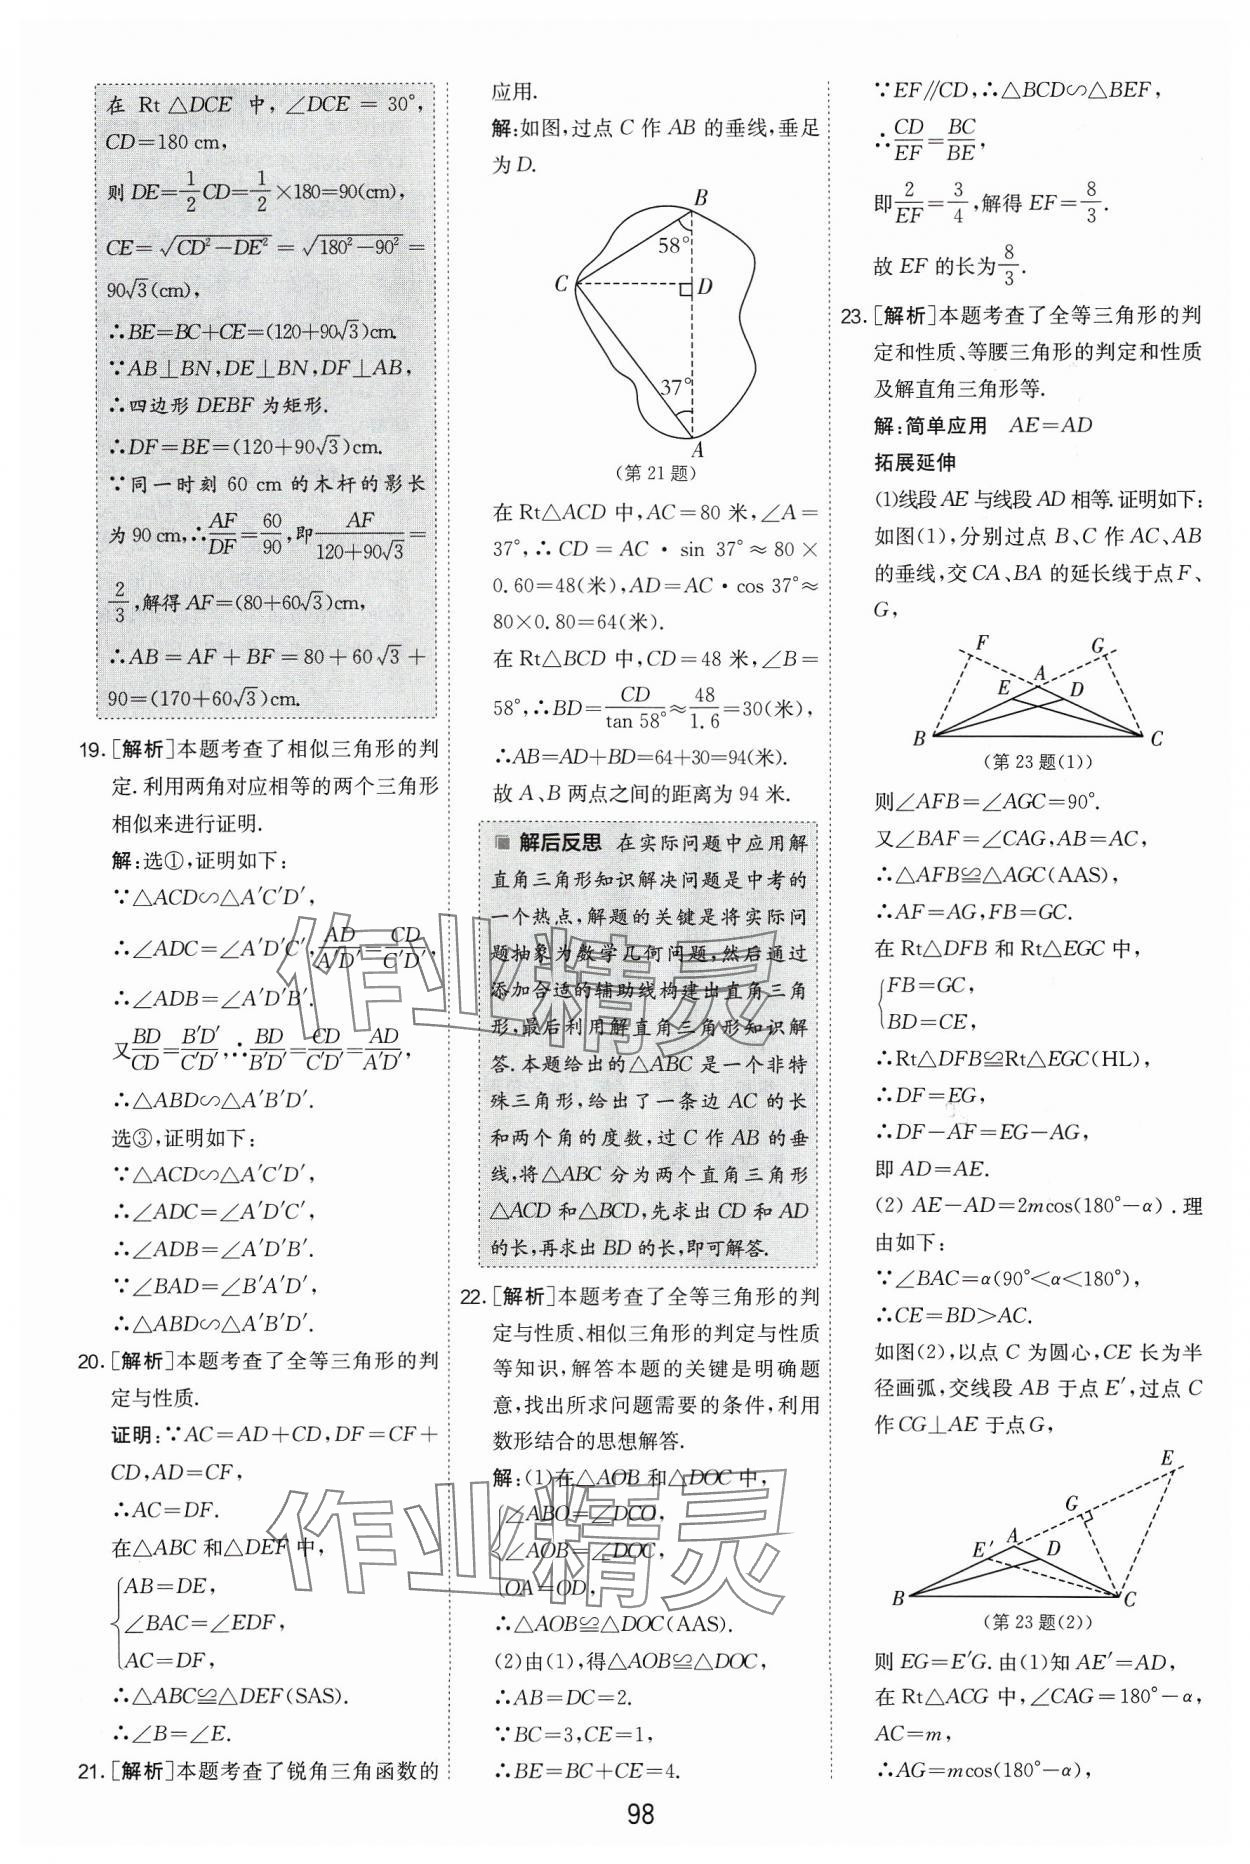 在 Rt △DCE 中，∠DCE = 30°，
CD=180 cm，
则 DE=1/2 CD=1/2×180=90(cm)，
CE=√(CD²−DE²) = √(180²−90²) =
90√3(cm)，
∴BE=BC+CE=(120+90√3)cm.
∵AB⊥BN，DE⊥BN，DF⊥AB，
∴四边形 DEBF 为矩形.
∴DF=BE=(120+90√3)cm.
∵同一时刻 60 cm 的木杆的影长
为 90 cm，∴AF/DF=60/90，即 AF/(120+90√3)=
2/3，解得 AF=(80+60√3)cm，
∴AB=AF+BF=80+60√3+
90=(170+60√3)cm.
19. [解析]本题考查了相似三角形的判
定.利用两角对应相等的两个三角形
相似来进行证明.
解：选①，证明如下：
∵△ACD∽△A′C′D′，
∴∠ADC=∠A′D′C′，AD/A′D′=CD/C′D′，
∴∠ADB=∠A′D′B′.
又BD/CD=B′D′/C′D′，∴BD/B′D′=CD/C′D′=AD/A′D′，
∴△ABD∽△A′B′D′.
选③，证明如下：
∵△ACD∽△A′C′D′，
∴∠ADC=∠A′D′C′，
∴∠ADB=∠A′D′B′.
∵∠BAD=∠B′A′D′，
∴△ABD∽△A′B′D′.
20. [解析]本题考查了全等三角形的判
定与性质.
证明：∵AC=AD+CD，DF=CF+
CD，AD=CF，
∴AC=DF.
在△ABC 和△DEF 中，
AB=DE，
∠BAC=∠EDF，
AC=DF，
∴△ABC≌△DEF(SAS).
∴∠B=∠E.
21. [解析]本题考查了锐角三角函数的
应用.
解：如图，过点 C 作 AB 的垂线，垂足
为 D.
B
58°
C
D
37°
A
(第 21 题)
在 Rt△ACD 中，AC=80 米，∠A=
37°，∴ CD = AC · sin 37° ≈ 80 ×
0.60=48(米)，AD=AC·cos 37°≈
80×0.80=64(米).
在 Rt△BCD 中，CD=48 米，∠B=
58°，∴BD=CD/tan 58°≈48/1.6=30(米)，
∴AB=AD+BD=64+30=94(米).
故 A、B 两点之间的距离为 94 米.
解后反思 在实际问题中应用解
直角三角形知识解决问题是中考的
一个热点，解题的关键是将实际问
题抽象为数学几何问题，然后通过
添加合适的辅助线构建出直角三角
形，最后利用解直角三角形知识解
答.本题给出的△ABC 是一个非特
殊三角形，给出了一条边 AC 的长
和两个角的度数，过 C 作 AB 的垂
线，将△ABC 分为两个直角三角形
△ACD 和△BCD，先求出 CD 和 AD
的长，再求出 BD 的长，即可解答.
22. [解析]本题考查了全等三角形的判
定与性质、相似三角形的判定与性质
等知识，解答本题的关键是明确题
意，找出所求问题需要的条件，利用
数形结合的思想解答.
解：(1)在△AOB 和△DOC 中，
∠ABO=∠DCO，
∠AOB=∠DOC，
OA=OD，
∴△AOB≌△DOC(AAS).
(2)由(1)，得△AOB≌△DOC，
∴AB=DC=2.
∵BC=3，CE=1，
∴BE=BC+CE=4.
∵EF∥CD，∴△BCD∽△BEF，
∴CD/EF=BC/BE，
即2/EF=3/4，解得 EF=8/3.
故 EF 的长为8/3.
23. [解析]本题考查了全等三角形的判
定和性质、等腰三角形的判定和性质
及解直角三角形等.
解：简单应用 AE=AD
拓展延伸
(1)线段 AE 与线段 AD 相等.证明如下：
如图(1)，分别过点 B、C 作 AC、AB
的垂线，交 CA、BA 的延长线于点 F、
G，
F G
A
E D
B C
(第 23 题(1))
则∠AFB=∠AGC=90°.
又∠BAF=∠CAG，AB=AC，
∴△AFB≌△AGC(AAS)，
∴AF=AG，FB=GC.
在 Rt△DFB 和 Rt△EGC 中，
FB=GC，
BD=CE，
∴Rt△DFB≌Rt△EGC(HL)，
∴DF=EG，
∴DF−AF=EG−AG，
即 AD=AE.
(2) AE−AD=2mcos(180°−α).理
由如下：
∵∠BAC=α(90°<α<180°)，
∴CE=BD>AC.
如图(2)，以点 C 为圆心，CE 长为半
径画弧，交线段 AB 于点 E′，过点 C
作 CG⊥AE 于点 G，
E
G
A
E′ D
B C
(第 23 题(2))
则 EG=E′G.由(1)知 AE′=AD，
在 Rt△ACG 中，∠CAG=180°−α，
AC=m，
∴AG=mcos(180°−α)，
98
作业精灵
作业精灵